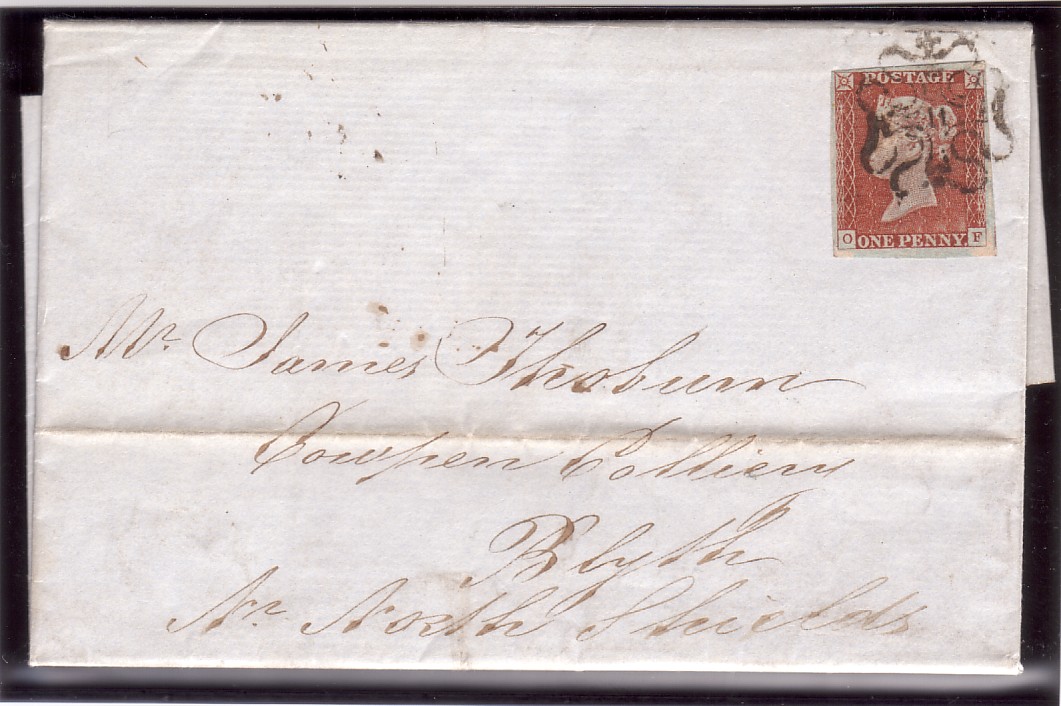 POSTAGE
O ONE PENNY F
Mr. James Thoburn
Cowpen Colliery
Blyth
Nr. North Shields